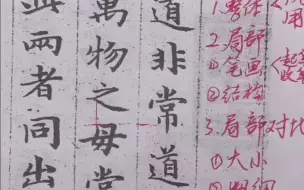 道非常道
萬物之母常
此兩者同出
1.整体
2.局部
①笔画
②结构
3.局部对比
①大小